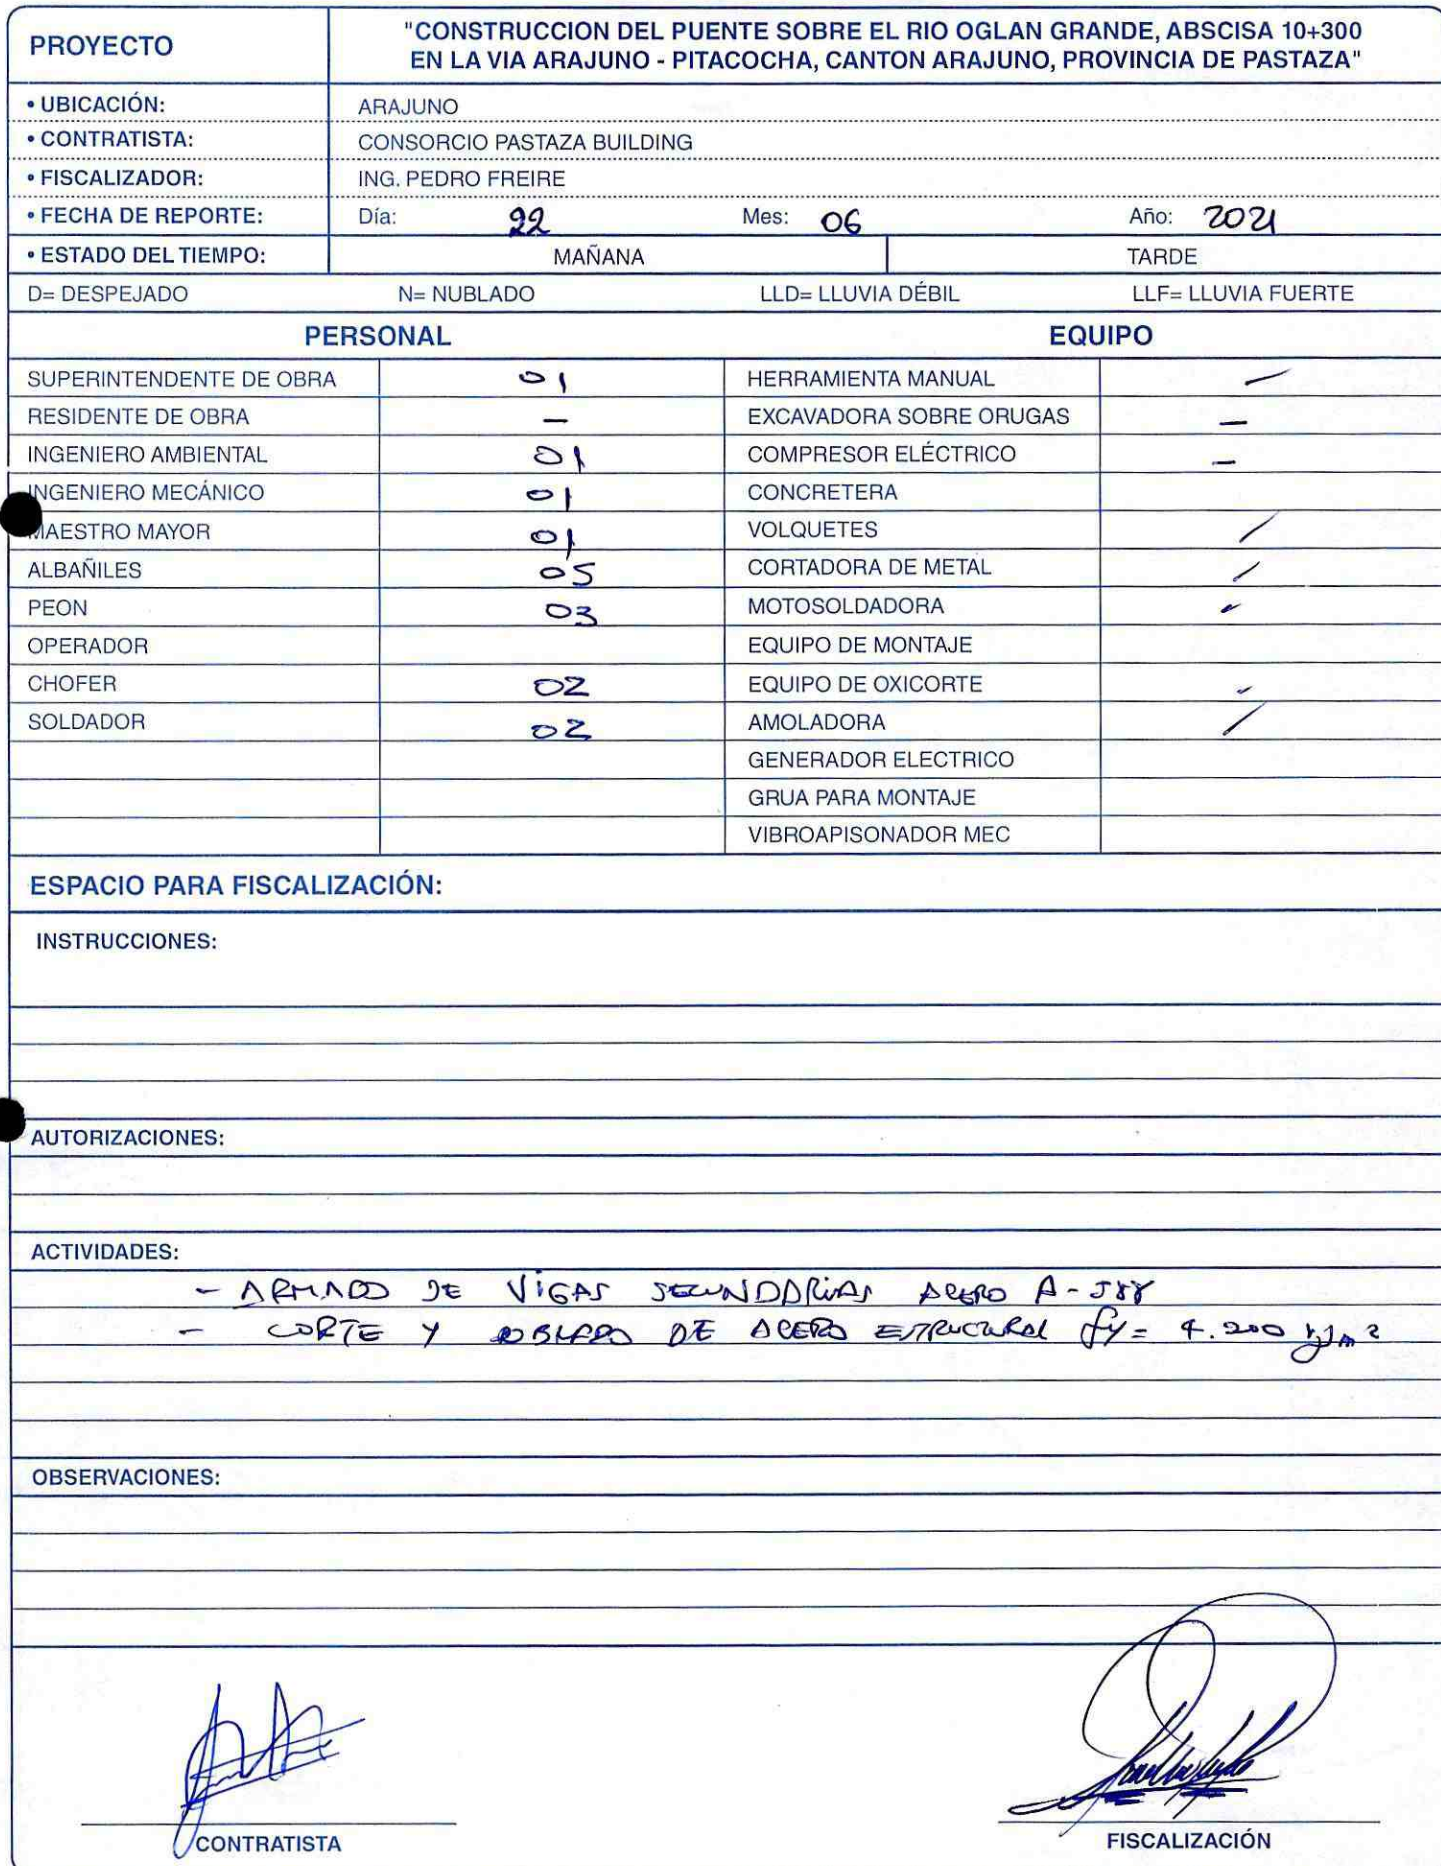 PROYECTO
"CONSTRUCCION DEL PUENTE SOBRE EL RIO OGLAN GRANDE, ABSCISA 10+300
EN LA VIA ARAJUNO - PITACOCHA, CANTON ARAJUNO, PROVINCIA DE PASTAZA"
• UBICACIÓN: ARAJUNO
• CONTRATISTA: CONSORCIO PASTAZA BUILDING
• FISCALIZADOR: ING. PEDRO FREIRE
• FECHA DE REPORTE: Día: 22 Mes: 06 Año: 2021
• ESTADO DEL TIEMPO: MAÑANA TARDE
D= DESPEJADO N= NUBLADO LLD= LLUVIA DÉBIL LLF= LLUVIA FUERTE
PERSONAL EQUIPO
SUPERINTENDENTE DE OBRA 01 HERRAMIENTA MANUAL /
RESIDENTE DE OBRA — EXCAVADORA SOBRE ORUGAS —
INGENIERO AMBIENTAL 01 COMPRESOR ELÉCTRICO —
INGENIERO MECÁNICO 01 CONCRETERA
MAESTRO MAYOR 01 VOLQUETES /
ALBAÑILES 05 CORTADORA DE METAL /
PEON 03 MOTOSOLDADORA /
OPERADOR EQUIPO DE MONTAJE
CHOFER 02 EQUIPO DE OXICORTE /
SOLDADOR 02 AMOLADORA /
GENERADOR ELECTRICO
GRUA PARA MONTAJE
VIBROAPISONADOR MEC
ESPACIO PARA FISCALIZACIÓN:
INSTRUCCIONES:
AUTORIZACIONES:
ACTIVIDADES:
- ARMADO DE VIGAS SECUNDARIAS ACERO A-588
- CORTE Y DOBLADO DE ACERO ESTRUCTURAL fy= 4.200
OBSERVACIONES:
CONTRATISTA FISCALIZACIÓN